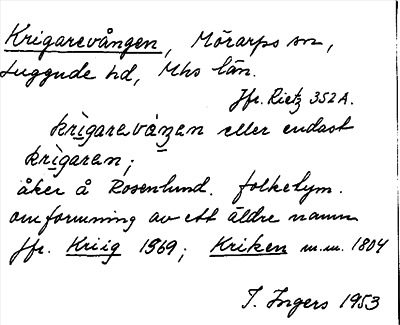 Krigarevången, Mörarps sn,
Luggude hd, Mhs län.
Jfr. Rietz 352A.
krigarevåŋen eller endast
krigaren;
åker å Rosenlund. folketym.
omformning av ett äldre namn
Jfr. Kriig 1569; Kriken m.m. 1804
I. Ingers 1953